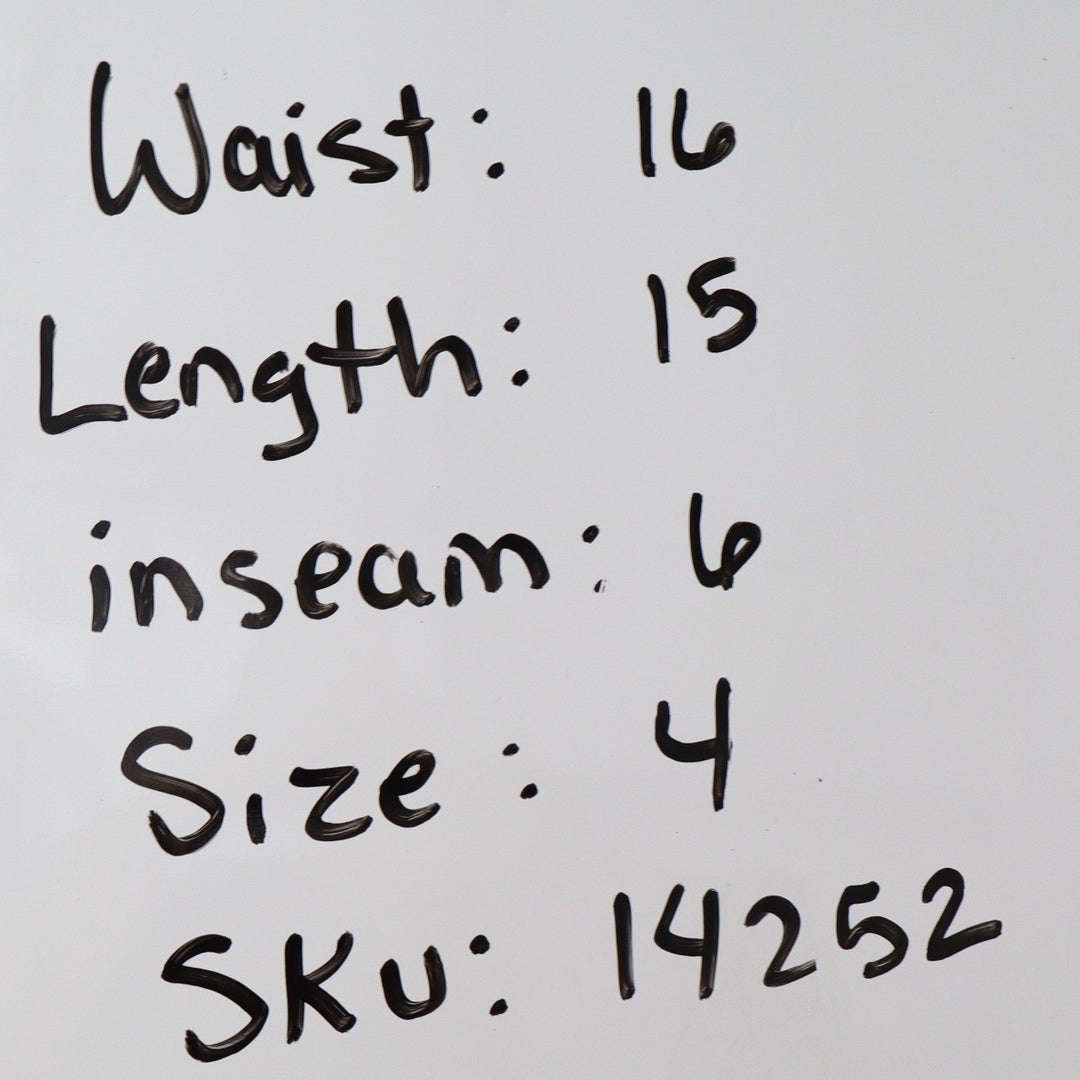 Waist: 16
Length: 15
inseam: 6
Size: 4
SKU: 14252